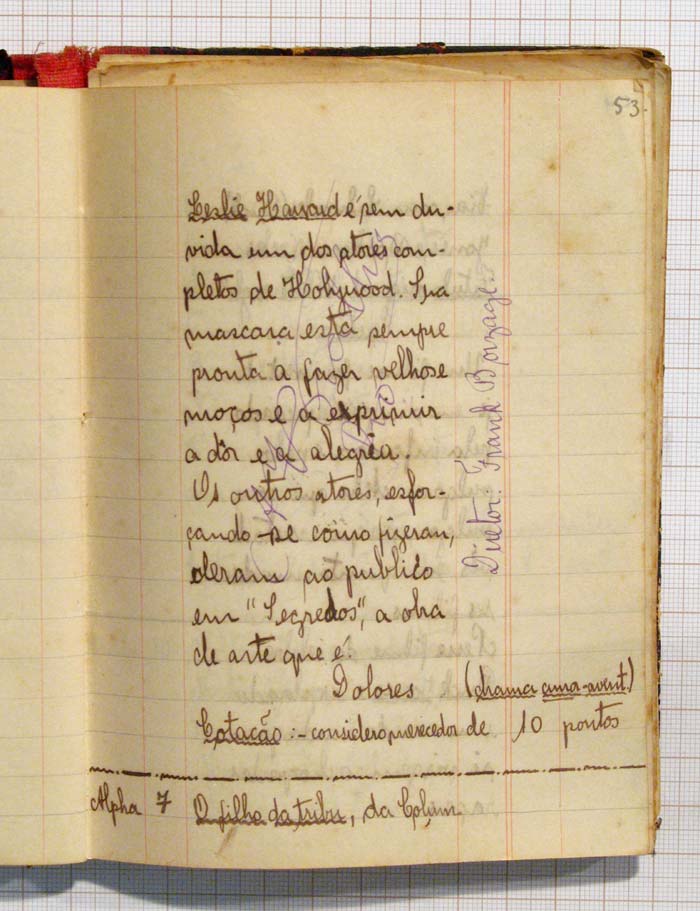 53.
Leslie Howard é sem du-
vida um dos atores com-
pletos de Hollywood. Sua
mascara está sempre
pronta a fazer velhos e
moços e a exprimir
a dôr e a alegria.
Os outros atores, esfor-
çando-se como fizeram,
deram ao publico
em "Segredos", a obra
de arte que é.
Dolores (drama amor-avent.)
Cotacão :- considero, merecedor de 10 pontos
Alpha 7 O filho da tribu, da Colum
Diretor: Frank Borzage.